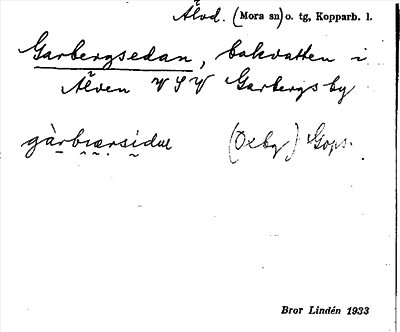 Älvd. (Mora sn) o. tg, Kopparb. l.
Garbergsedan, bakvatten i
Älven VSV Garbergs by
gàrbrærsidæ (Oxbg) Gops.
Bror Lindén 1933